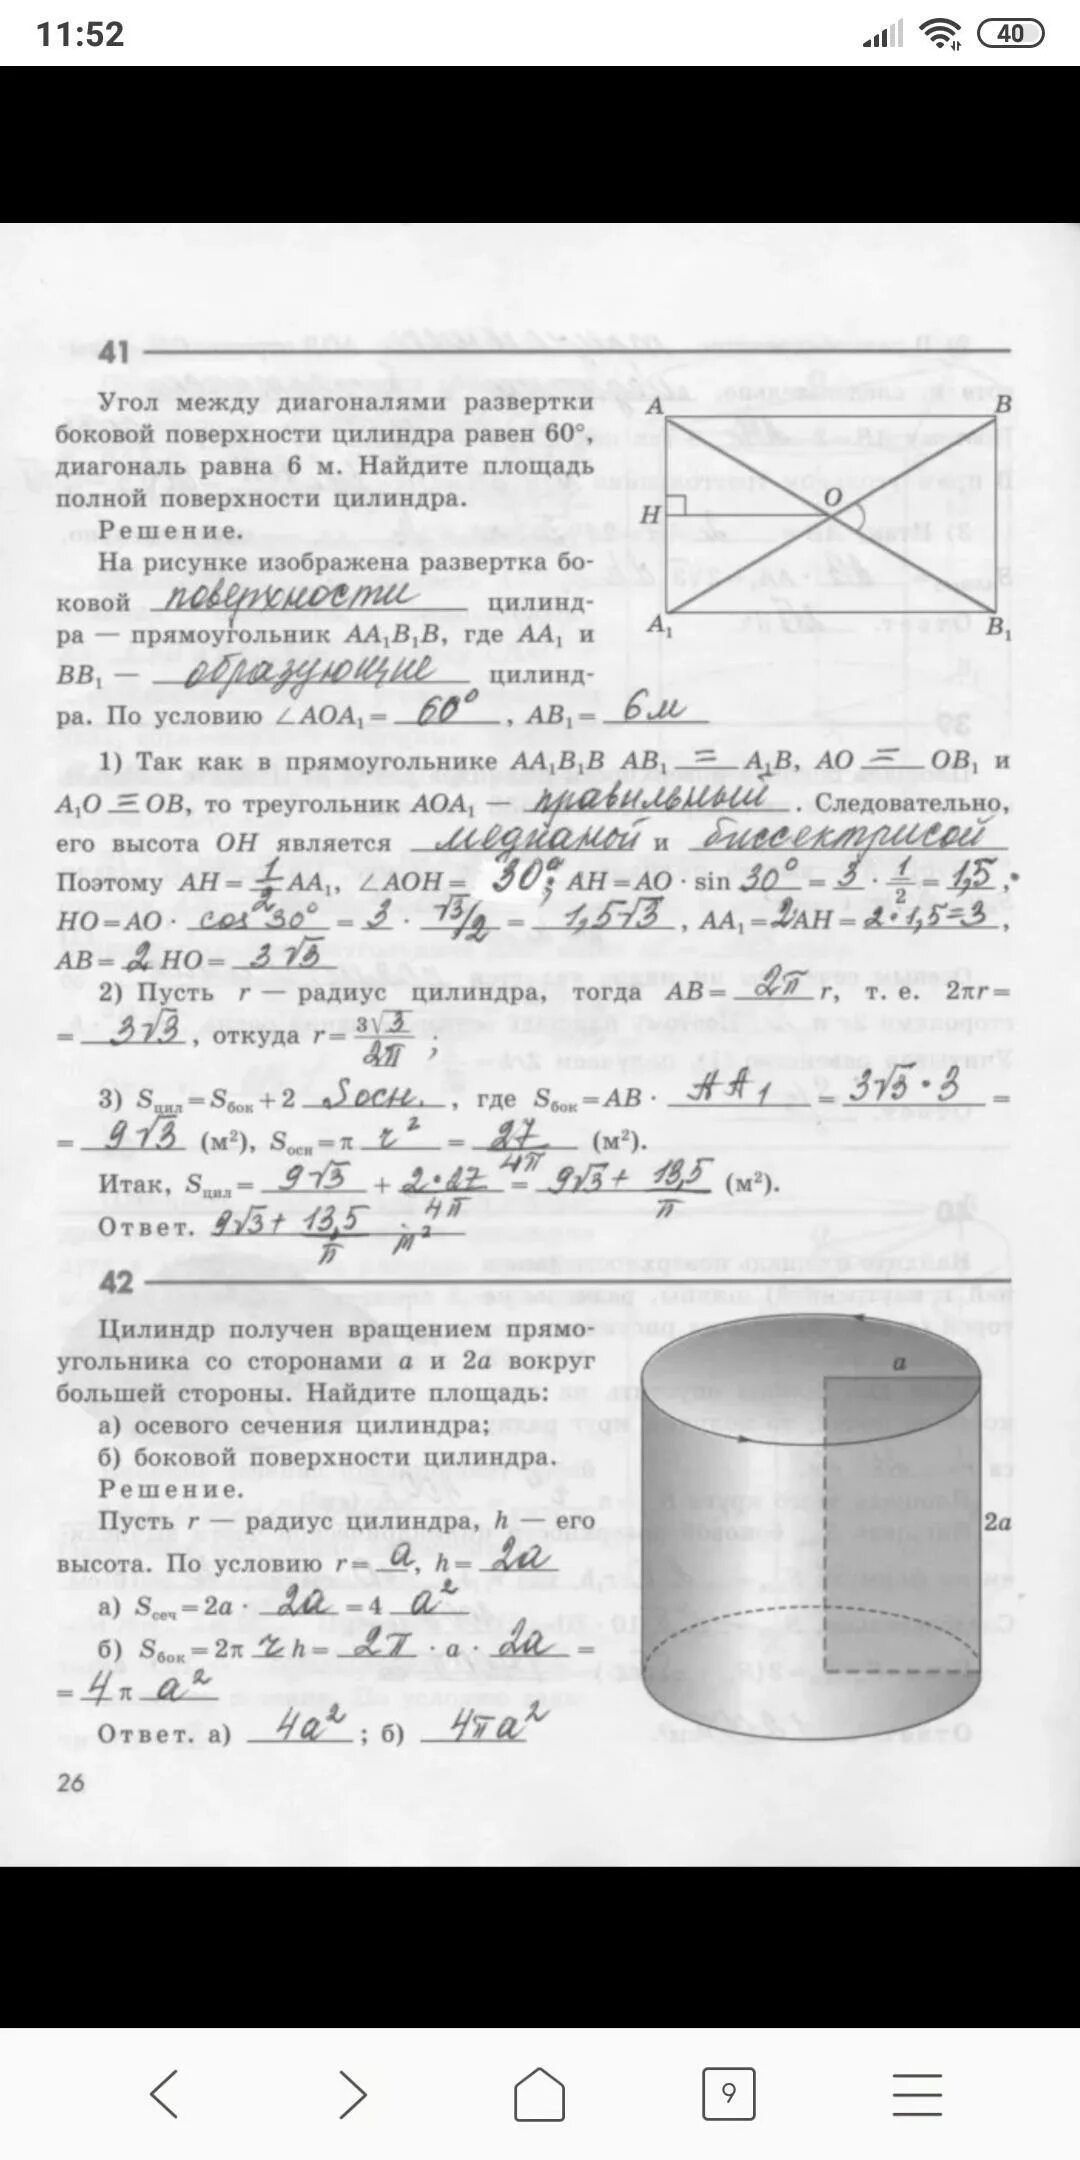 11:52
40
41
Угол между диагоналями развертки
боковой поверхности цилиндра равен 60°,
диагональ равна 6 м. Найдите площадь
полной поверхности цилиндра.
Решение.
На рисунке изображена развертка бо-
ковой поверхности цилинд-
ра — прямоугольник AA₁B₁B, где AA₁ и
BB₁ — образующие цилинд-
ра. По условию ∠AOA₁ = 60°, AB₁ = 6 м
A
B
O
H
A₁
B₁
1) Так как в прямоугольнике AA₁B₁B AB₁ = A₁B, AO = OB₁ и
A₁O = OB, то треугольник AOA₁ — правильный. Следовательно,
его высота OH является медианой и биссектрисой
Поэтому AH = 1/2 AA₁, ∠AOH = 30°; AH = AO · sin 30° = 3 · 1/2 = 1,5,
HO = AO · cos 30° = 3 · √3/2 = 1,5√3, AA₁ = 2AH = 2 · 1,5 = 3,
AB = 2 HO = 3√3
2) Пусть r — радиус цилиндра, тогда AB = 2π r, т. е. 2πr =
= 3√3, откуда r = 3√3/2π;
3) Sцил = Sбок + 2 Sосн., где Sбок = AB · AA₁ = 3√3 · 3 =
= 9√3 (м²), Sосн = π r² = 27/4π (м²).
Итак, Sцил = 9√3 + 2·27/4π = 9√3 + 13,5/π (м²).
Ответ. 9√3 + 13,5/π м²
42
Цилиндр получен вращением прямо-
угольника со сторонами a и 2a вокруг
большей стороны. Найдите площадь:
а) осевого сечения цилиндра;
б) боковой поверхности цилиндра.
Решение.
Пусть r — радиус цилиндра, h — его
высота. По условию r = a, h = 2a
а) Sсеч = 2a · 2a = 4 a²
б) Sбок = 2π r h = 2π · a · 2a =
= 4 π a²
Ответ. а) 4a²; б) 4πa²
a
2a
26
9